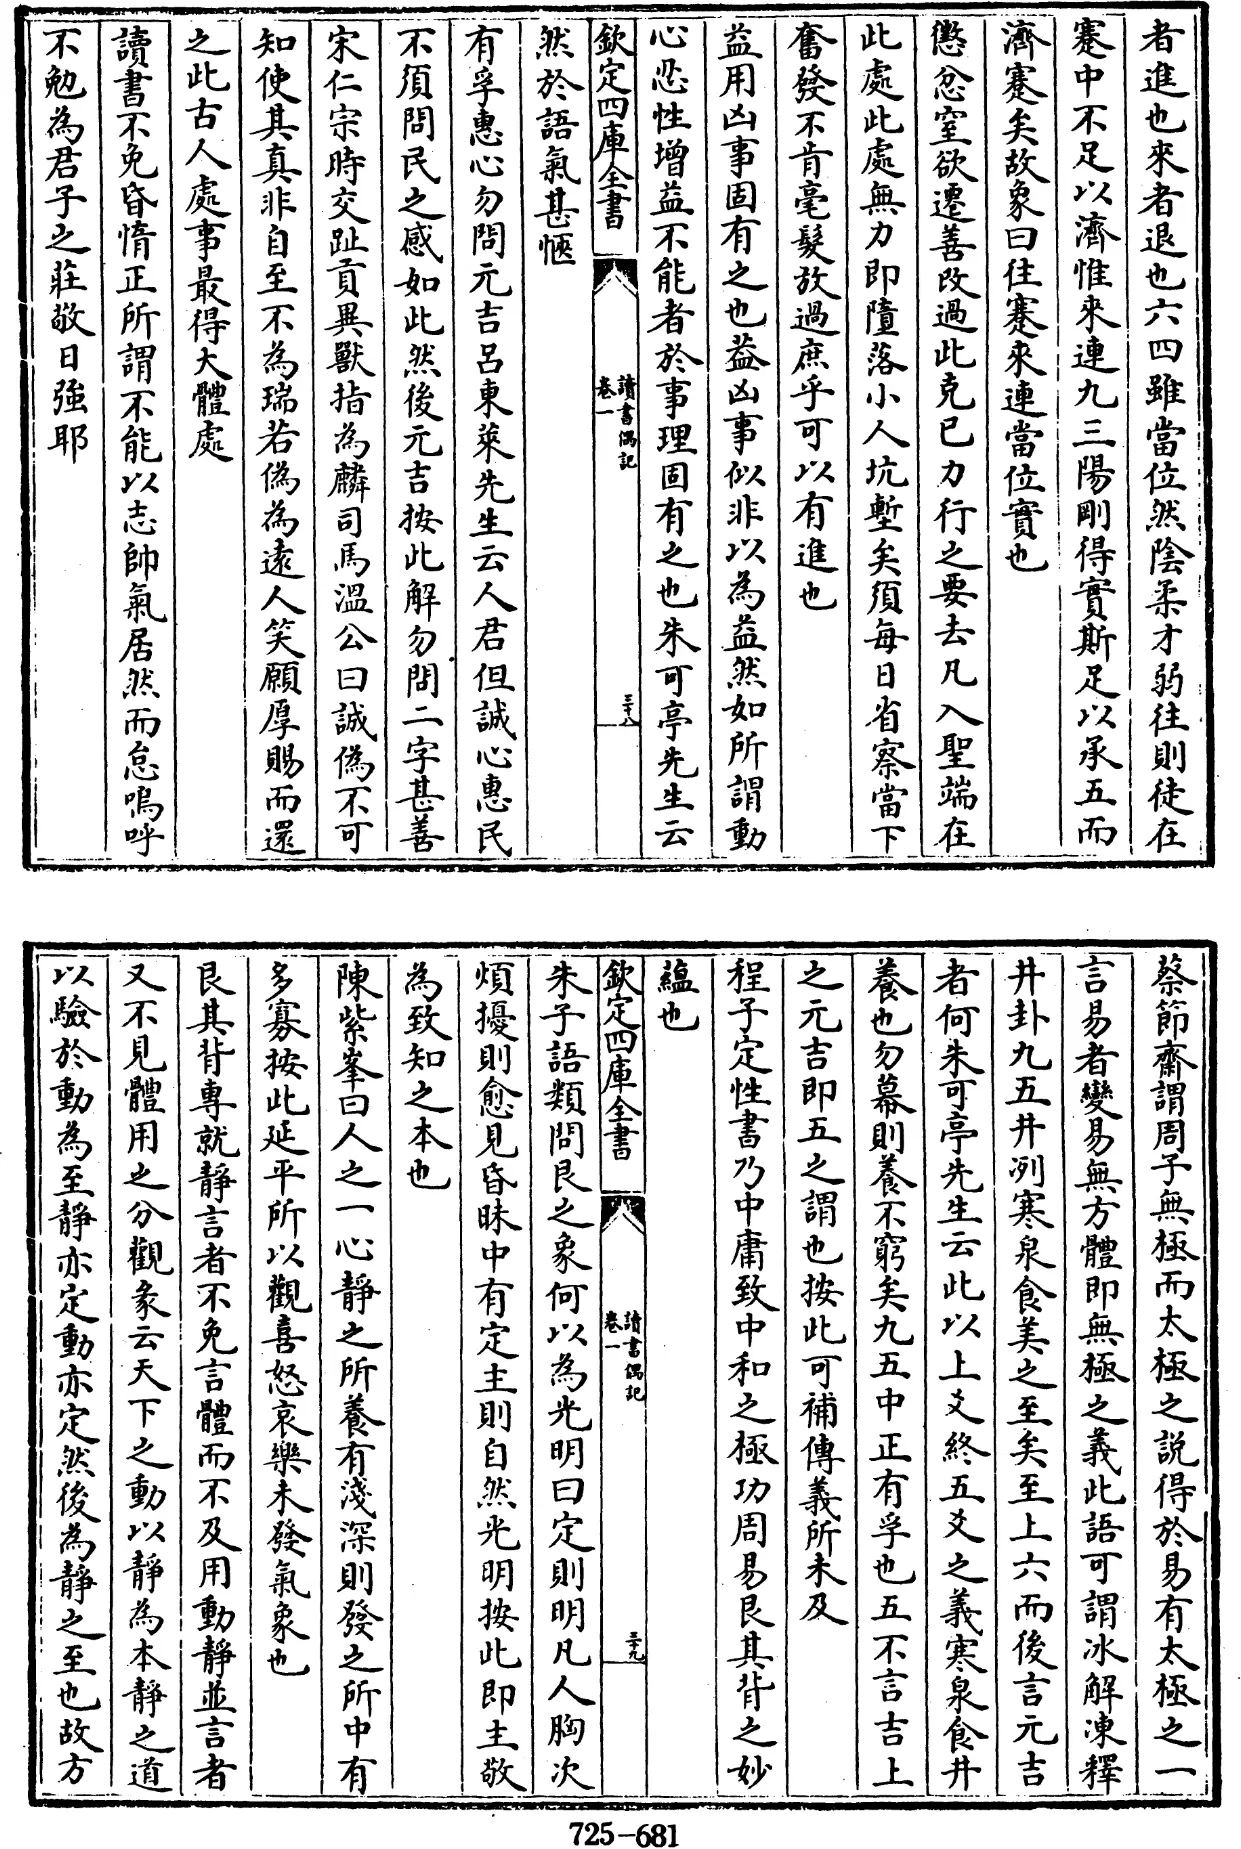 者進也來者退也六四雖當位然陰柔才弱往則徒在
蹇中不足以濟惟來連九三陽剛得實斯足以承五而
濟蹇矣故象曰往蹇來連當位實也
懲忿窒欲遷善改過此克已力行之要去凡入聖端在
此處此處無力即墮落小人坑塹矣須每日省察當下
奮發不肯毫髮放過庶乎可以有進也
益用凶事固有之也葢凶事似非以為益然如所謂動
心忍性增益不能者於事理固有之也朱可亭先生云
然於語氣甚愜
欽定四庫全書
讀書偶記
卷一
三十八
有孚惠心勿問元吉呂東萊先生云人君但誠心惠民
不須問民之感如此然後元吉按此解勿問二字甚善
宋仁宗時交趾貢異獸指為麟司馬溫公曰誠偽不可
知使其真非自至不為瑞若偽為遠人笑願厚賜而還
之此古人處事最得大體處
讀書不免昏惰正所謂不能以志帥氣居然而怠嗚呼
不勉為君子之莊敬日強耶
蔡節齋謂周子無極而太極之說得於易有太極之一
言易者變易無方體即無極之義此語可謂冰解凍釋
井卦九五井冽寒泉食美之至矣至上六而後言元吉
者何朱可亭先生云此以上爻終五爻之義寒泉食井
養也勿幕則養不窮矣九五中正有孚也五不言吉上
之元吉即五之謂也按此可補傳義所未及
程子定性書乃中庸致中和之極功周易艮其背之妙
蘊也
欽定四庫全書
讀書偶記
卷一
三十九
朱子語類問艮之象何以為光明曰定則明凡人胸次
煩擾則愈見昏昧中有定主則自然光明按此即主敬
為致知之本也
陳紫峯曰人之一心靜之所養有淺深則發之所中有
多寡按此延平所以觀喜怒哀樂未發氣象也
艮其背專就靜言者不免言體而不及用動靜並言者
又不見體用之分觀彖云天下之動以靜為本靜之道
以驗於動為至靜亦定動亦定然後為靜之至也故方
725-681